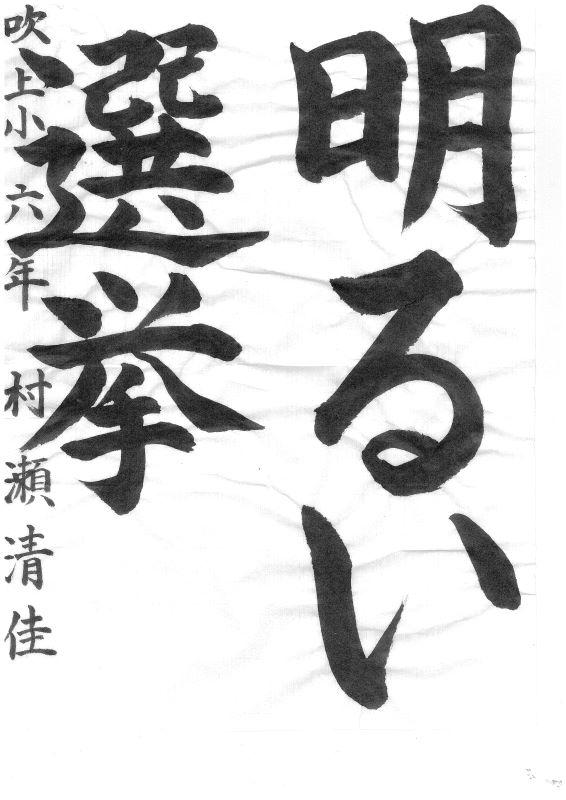 明るい
選挙
吹上小 六年 村瀬清佳